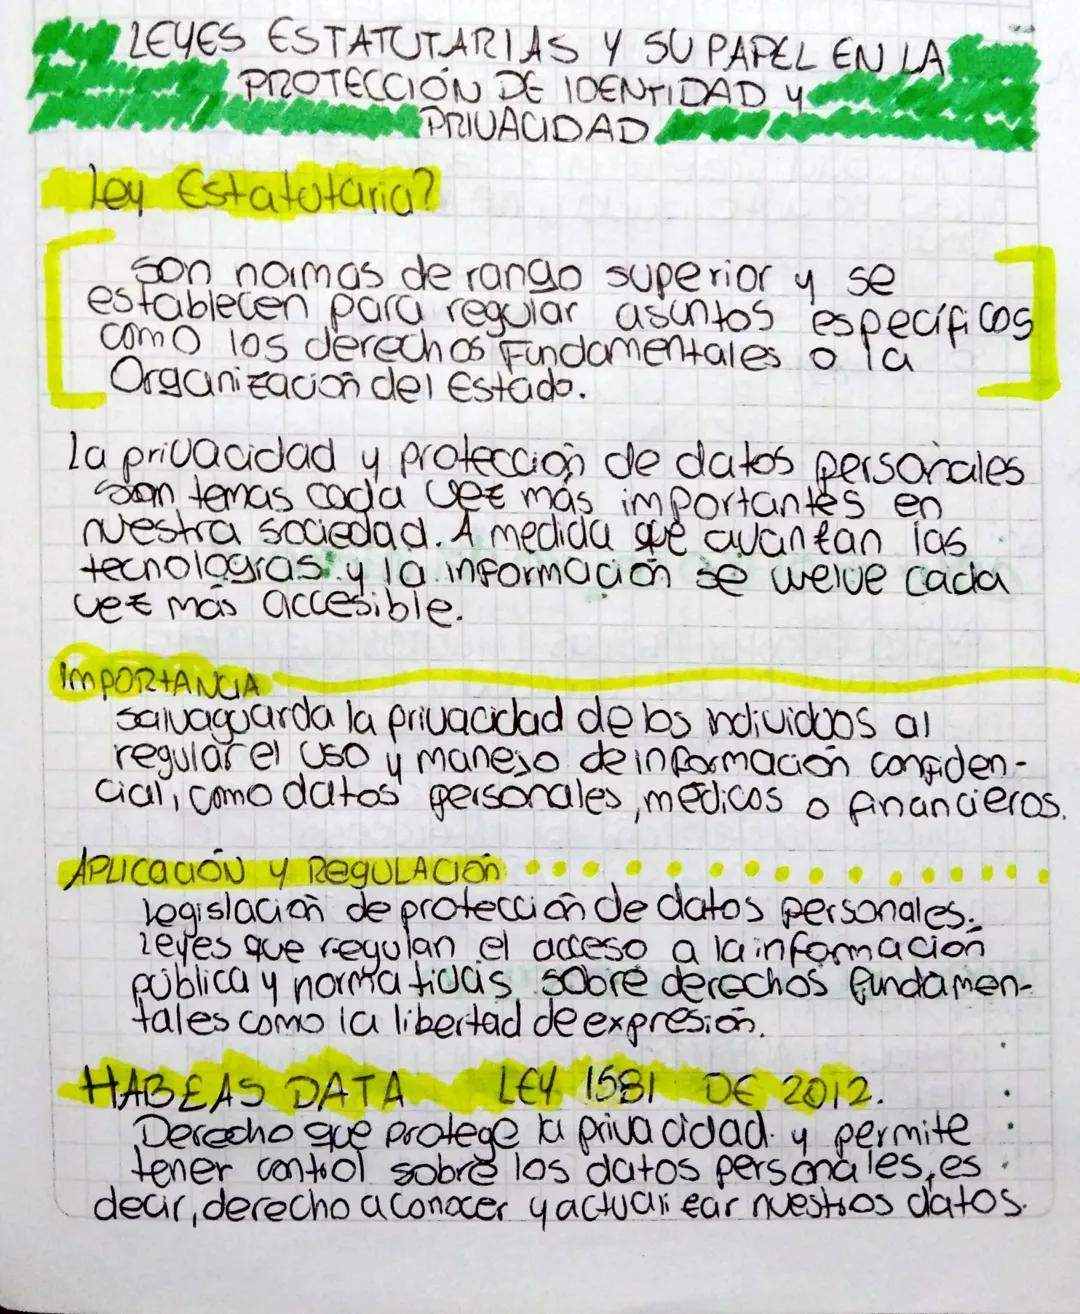 LEYES ESTATUTARIAS Y SU PAPEL EN LA
PROTECCIÓN DE IDENTIDAD Y
PRIVACIDAD
Ley Estatutaria?
son normas de rango superior y se
establecen para regular asuntos específicos
como los derechos Fundamentales o la
Organización del Estado.
La privacidad y protección de datos personales
son temas cada vez más importantes en
nuestra sociedad. A medida que avanzan las
tecnologías y la información se welve cada
vez más accesible.
IMPORTANCIA
salvaguarda la privacidad de los individuos al
regular el uso y manejo de información confiden-
cial, como datos personales, médicos o financieros.
APLICACIÓN y REGULACIÓN
Legislación de protección de datos personales.
Leyes que regulan el acceso a la información
pública y normativas sobre derechos fundamen-
tales como la libertad de expresión.
HABEAS DATA LEY 1581 DE 2012.
Derecho que protege la privacidad y permite
tener control sobre los datos personales, es
decir, derecho a conocer y actualizar nuestros datos.